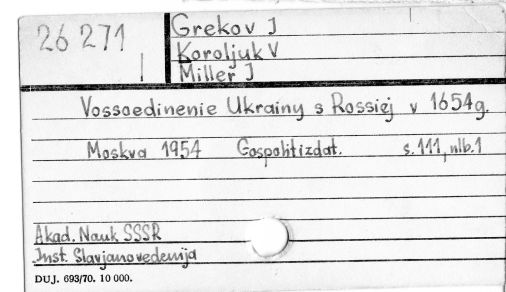 26 271
Grekov J
Koroljuk V
Miller J
Vossoedinenie Ukrainy s Rossiej v 1654g.
Moskva 1954 Gospolitizdat. s.111, nlb.1
Akad. Nauk SSSR
Inst. Slavjanovedenija
DUJ. 693/70. 10 000.